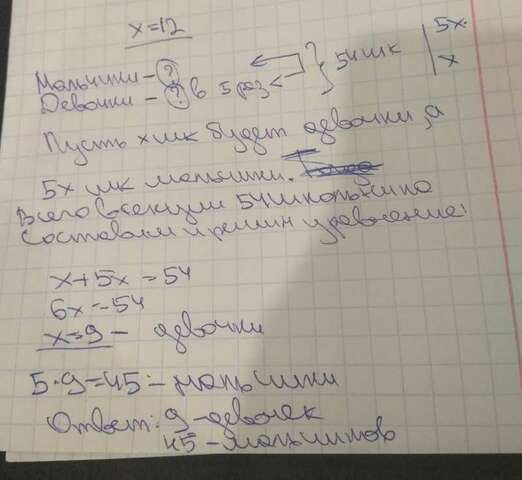 x=12
Мальчики - ? } 54 шк | 5x.
Девочки - ? в 5 раз < | x
Пусть x шк будет девочки, а
5x шк мальчики.
Всего в секции 54 школьника
Составим и решим уравнение:
x+5x=54
6x=54
x=9 - девочки
5·9=45 - мальчики
Ответ: 9 - девочек
45 - мальчиков